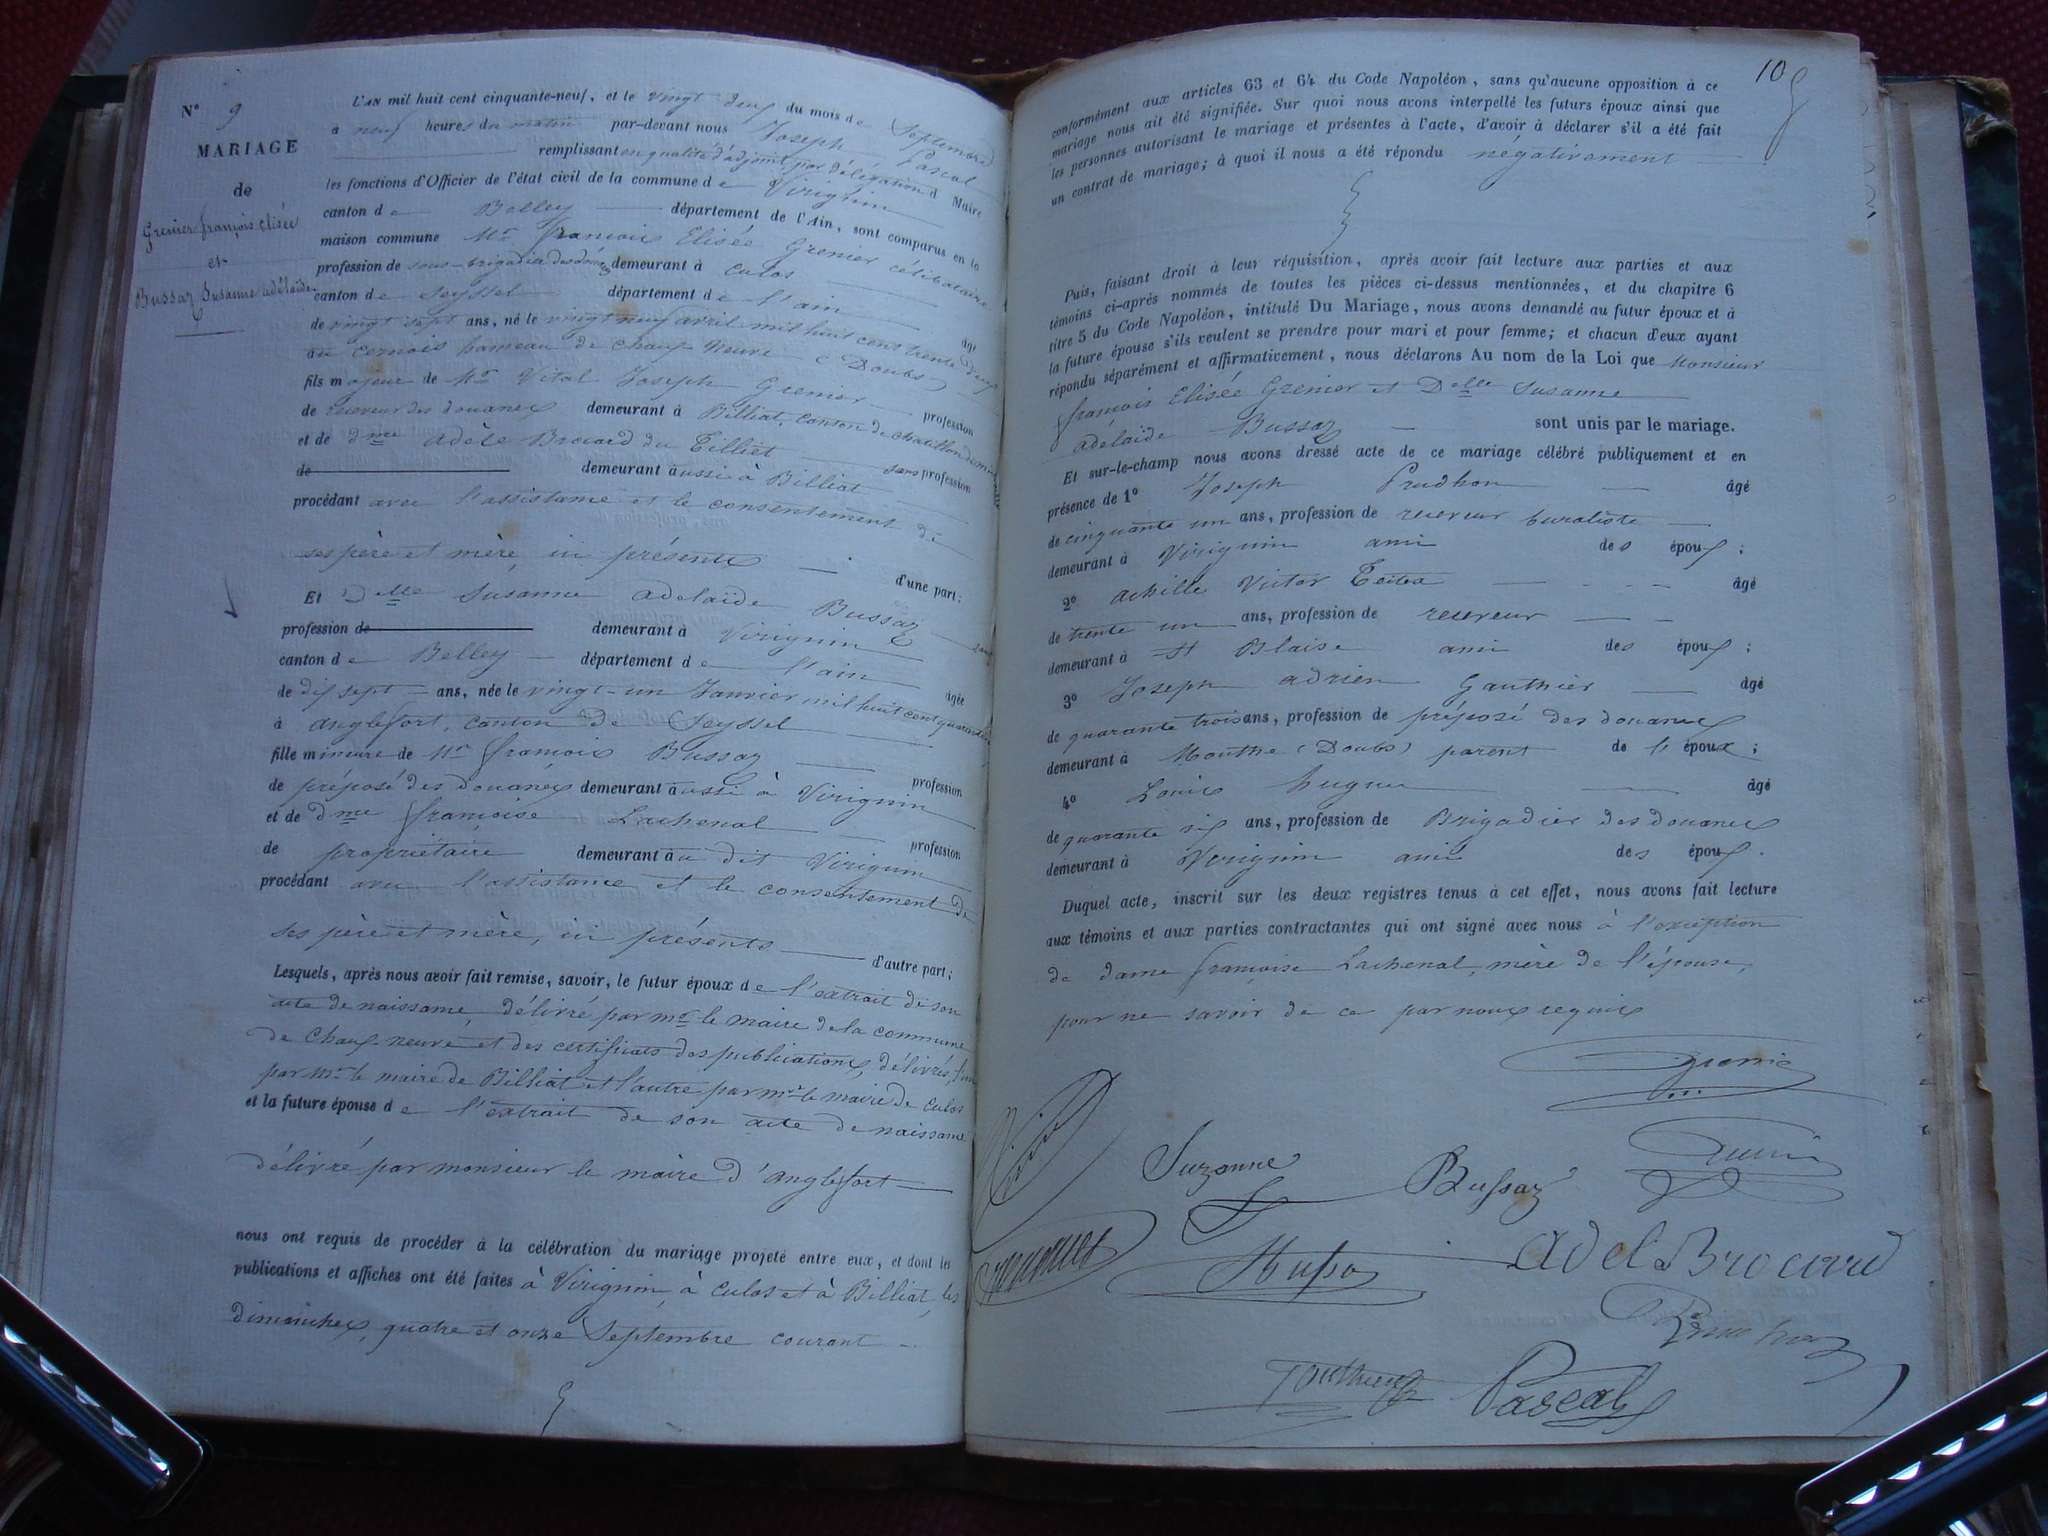 N° 9
MARIAGE
de
Grenier françois elisée
et
Bussaz Susanne adélaïde
L'AN mil huit cent cinquante-neuf, et le vingt deux du mois de Septembre
à neuf heures du matin par-devant nous Joseph Pascal
remplissant en qualité d'adjoint par délégation d Maire
les fonctions d'Officier de l'état civil de la commune de Virignin
canton de Belley département de l'Ain, sont comparus en la
maison commune Mr françois Elisée Grenier célibataire
profession de sous-brigadier des douanes demeurant à Culoz
canton de Seyssel département de l'ain âgé
de vingt sept ans, né le vingt neuf avril mil huit cent trente deux
au cernois hameau de chaux neuve (Doubs)
fils majeur de Mr Vital Joseph Grenier profession
de receveur des douanes demeurant à Billiat, canton de chatillon
et de dme adèle Brocard du Tilliet sans profession
de demeurant aussi à Billiat
procédant avec l'assistance et le consentement de
ses père et mère, ici présents d'une part;
Et Delle Susanne adelaïde Bussaz sans
profession de demeurant à Virignin
canton de Belley département de l'ain âgée
de dix sept ans, née le vingt-un Janvier mil huit cent quarante
à anglefort, canton de Seyssel
fille mineure de Mr françois Bussaz profession
de préposé des douanes demeurant aussi à Virignin
et de dme françoise Lachenal profession
de propriétaire demeurant au dit Virignin
procédant avec l'assistance et le consentement de
ses père et mère, ici présents d'autre part;
Lesquels, après nous avoir fait remise, savoir, le futur époux de l'extrait de son
acte de naissance, délivré par mr le maire de la commune
de Chaux neuve et des certificats des publications, délivrés, l'un
par Mr le maire de Billiat et l'autre par mr le maire de culoz
et la future épouse de l'extrait de son acte de naissance
délivré par monsieur le maire d'anglefort
nous ont requis de procéder à la célébration du mariage projeté entre eux, et dont les
publications et affiches ont été faites à Virignin, à Culoz et à Billiat, les
dimanches, quatre et onze Septembre courant
10
conformément aux articles 63 et 64 du Code Napoléon, sans qu'aucune opposition à ce
mariage nous ait été signifiée. Sur quoi nous avons interpellé les futurs époux ainsi que
les personnes autorisant le mariage et présentes à l'acte, d'avoir à déclarer s'il a été fait
un contrat de mariage; à quoi il nous a été répondu négativement
Puis, faisant droit à leur réquisition, après avoir fait lecture aux parties et aux
témoins ci-après nommés de toutes les pièces ci-dessus mentionnées, et du chapitre 6
titre 5 du Code Napoléon, intitulé Du Mariage, nous avons demandé au futur époux et à
la future épouse s'ils veulent se prendre pour mari et pour femme; et chacun d'eux ayant
répondu séparément et affirmativement, nous déclarons Au nom de la Loi que Monsieur
françois Elisée Grenier et Delle Susanne
adelaïde Bussaz sont unis par le mariage.
Et sur-le-champ nous avons dressé acte de ce mariage célébré publiquement et en
présence de 1° Joseph Prudhon âgé
de cinquante un ans, profession de receveur buraliste
demeurant à Virignin ami des époux;
2° achille Victor Tertea âgé
de trente un ans, profession de receveur
demeurant à St Blaise ami des époux;
3° Joseph adrien Gauthier âgé
de quarante trois ans, profession de préposé des douanes
demeurant à Mouthe (Doubs) parent de l'époux;
4° Louis hugue âgé
de quarante six ans, profession de Brigadier des douanes
demeurant à Virignin ami des époux.
Duquel acte, inscrit sur les deux registres tenus à cet effet, nous avons fait lecture
aux témoins et aux parties contractantes qui ont signé avec nous à l'exception
de dame françoise Lachenal, mère de l'épouse,
pour ne savoir de ce par nous requis
Grenier
Suzanne Bussaz
Bussaz Adel Brocard
Prudhon
Gauthier Pascal